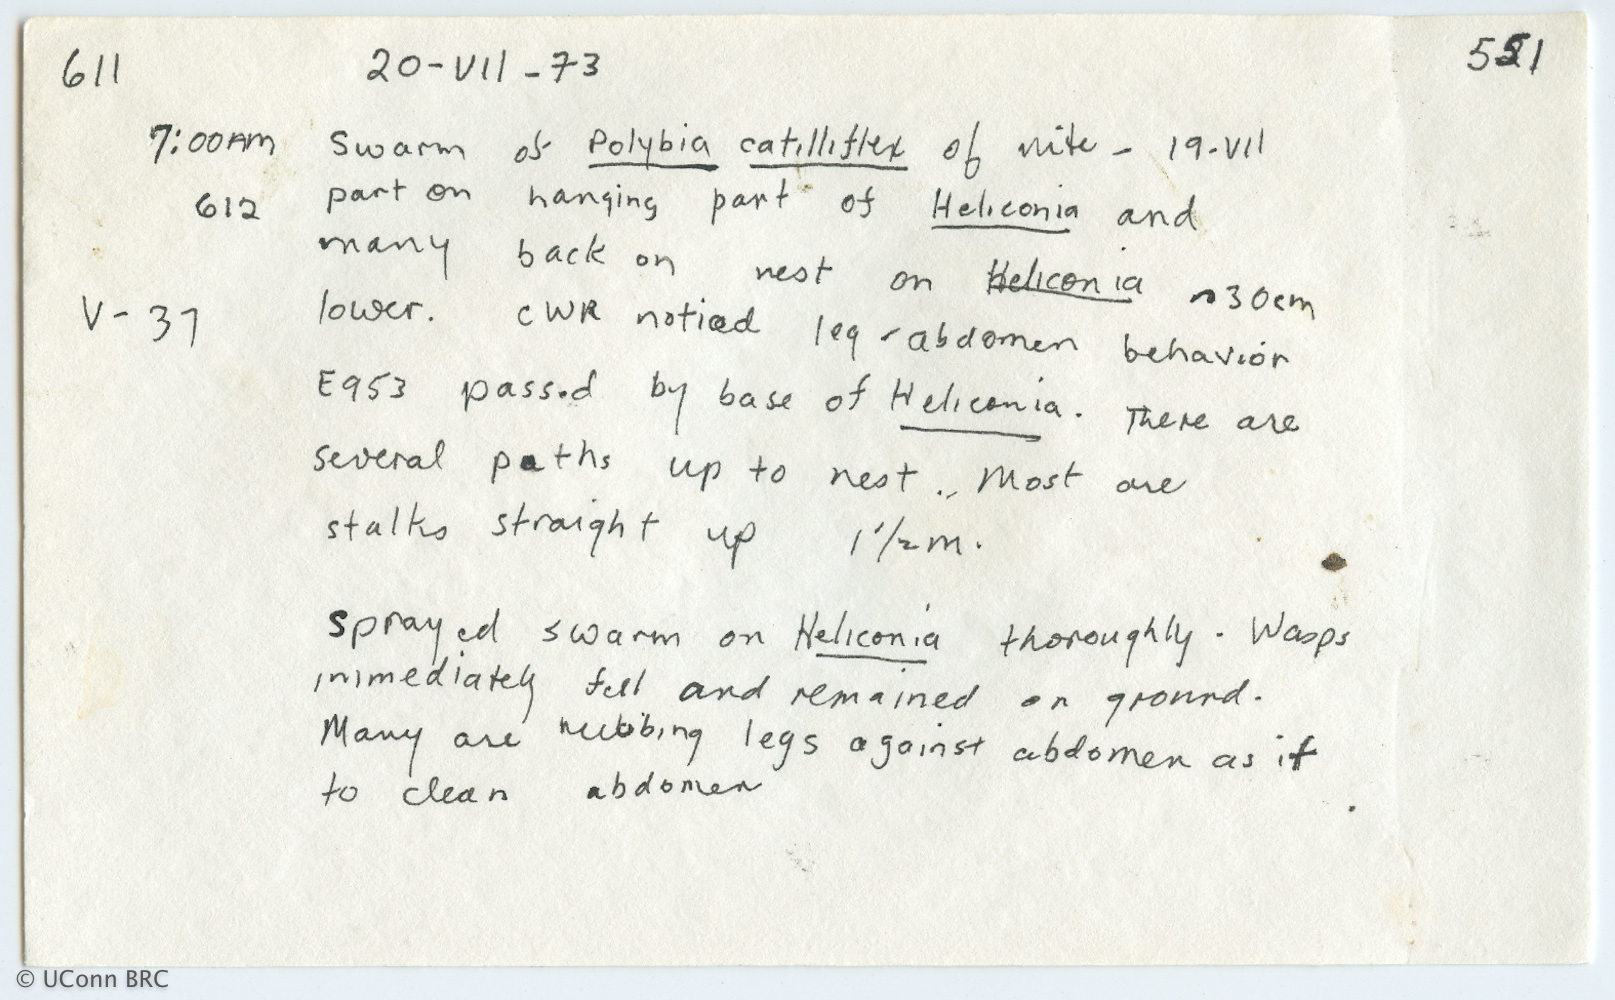 611 20-VII-73 551
7:00AM Swarm of Polybia catillifex of nite - 19-VII
612 part on hanging part of Heliconia and
many back on nest on Heliconia ~30cm
V-37 lower. CWR noticed leg-abdomen behavior
E953 passed by base of Heliconia. There are
several paths up to nest. Most are
stalks straight up 1 1/2 m.
Sprayed swarm on Heliconia thoroughly. Wasps
immediately fell and remained on ground.
Many are rubbing legs against abdomen as if
to clean abdomen
© UConn BRC